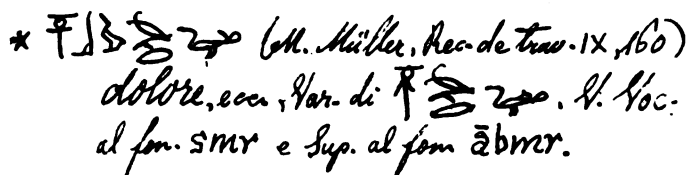 * (M. Müller, Rec. de trav. IX, 160)
dolore, ecc., Var. di . V. Voc.
al fon. smr e Sup. al fon. ābmr.